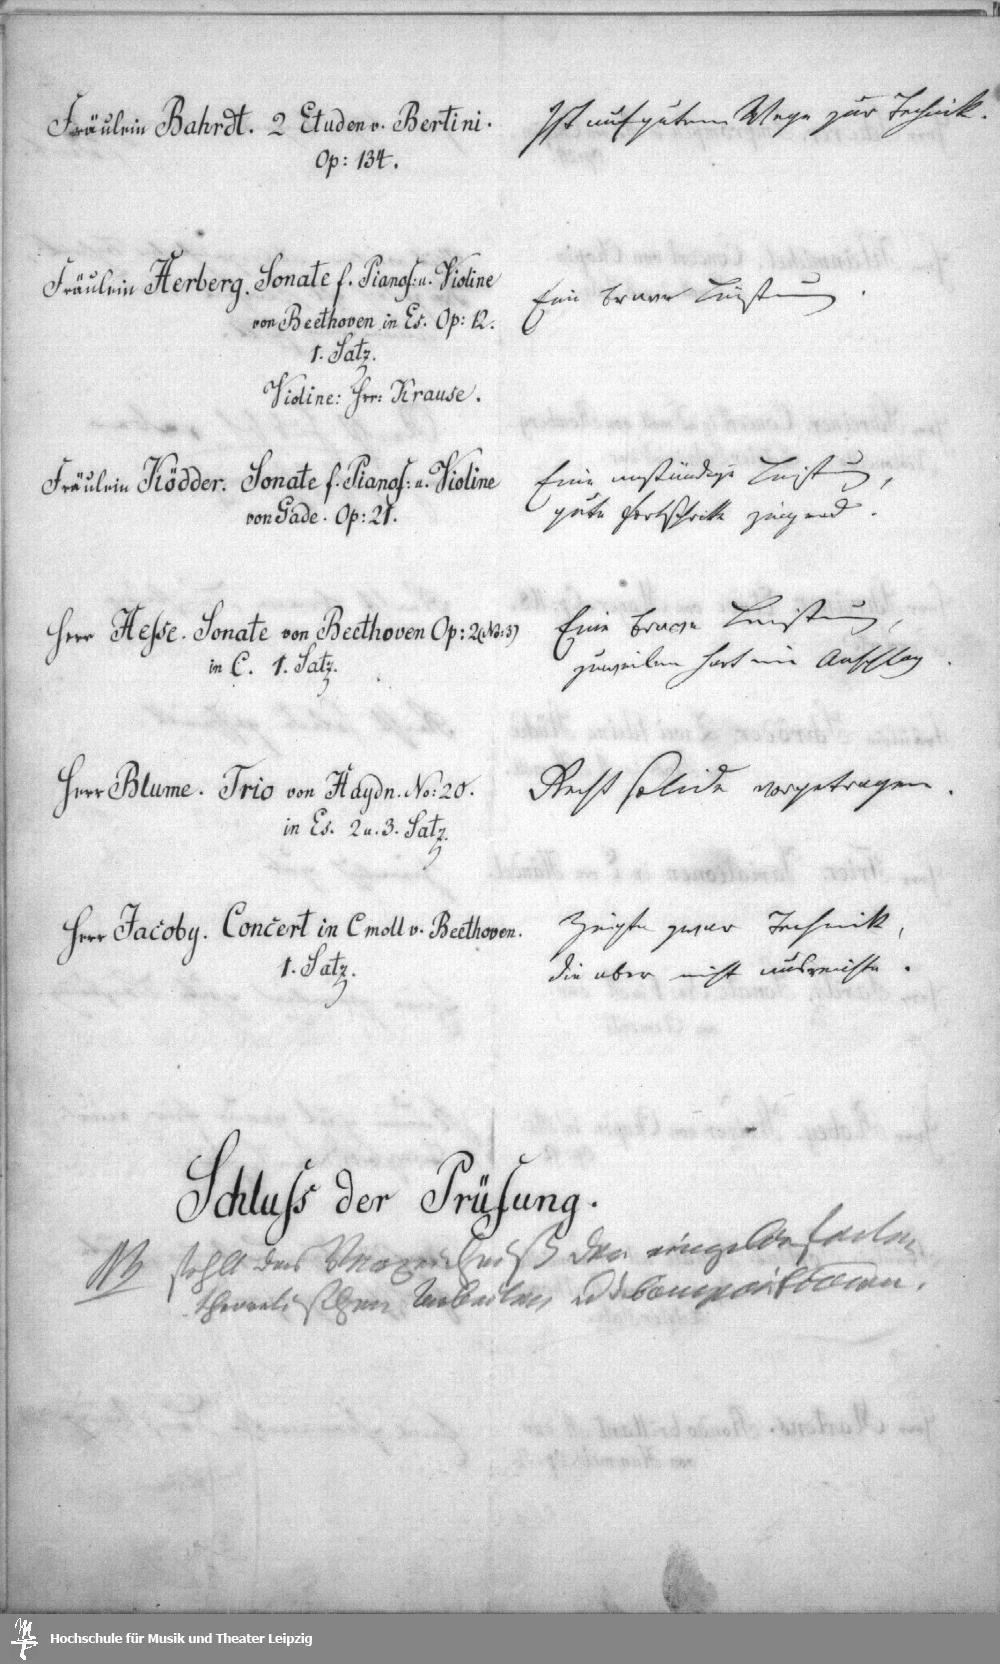 Fräulein Bahrdt. 2 Etuden v. Bertini.
Op: 134.
Ist auf gutem Wege zur Technik.
Fräulein Herberg. Sonate f. Pianof: u. Violine
von Beethoven in Es. Op: 12.
1. Satz.
Violine: Herr Krause.
Eine brave Leistung.
Fräulein Ködder. Sonate f. Pianof: u. Violine
von Gade. Op: 21.
Eine anständige Leistung,
gute Fortschritte zeigend.
Herr Hesse. Sonate von Beethoven Op: 2 (No: 3)
in C. 1. Satz.
Eine brave Leistung,
zuweilen hart im Anschlag.
Herr Blume. Trio von Haydn. No: 20.
in Es. 2 u. 3. Satz.
Recht solide vorgetragen.
Herr Jacoby. Concert in C moll v. Beethoven.
1. Satz.
Zeigte zwar Technik,
die aber nicht ausreichte.
Schluss der Prüfung.
NB fehlt das Verzeichniß der eingelieferten
theoretischen Arbeiten u Compositionen.
Hochschule für Musik und Theater Leipzig